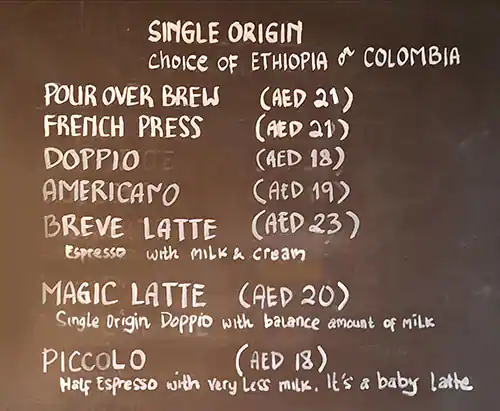 SINGLE ORIGIN
CHOICE OF ETHIOPIA or COLOMBIA
POUR OVER BREW (AED 21)
FRENCH PRESS (AED 21)
DOPPIO (AED 18)
AMERICANO (AED 19)
BREVE LATTE (AED 23)
Espresso with milk & cream
MAGIC LATTE (AED 20)
Single Origin Doppio with balance amount of milk
PICCOLO (AED 18)
Half Espresso with very less milk. It's a baby latte